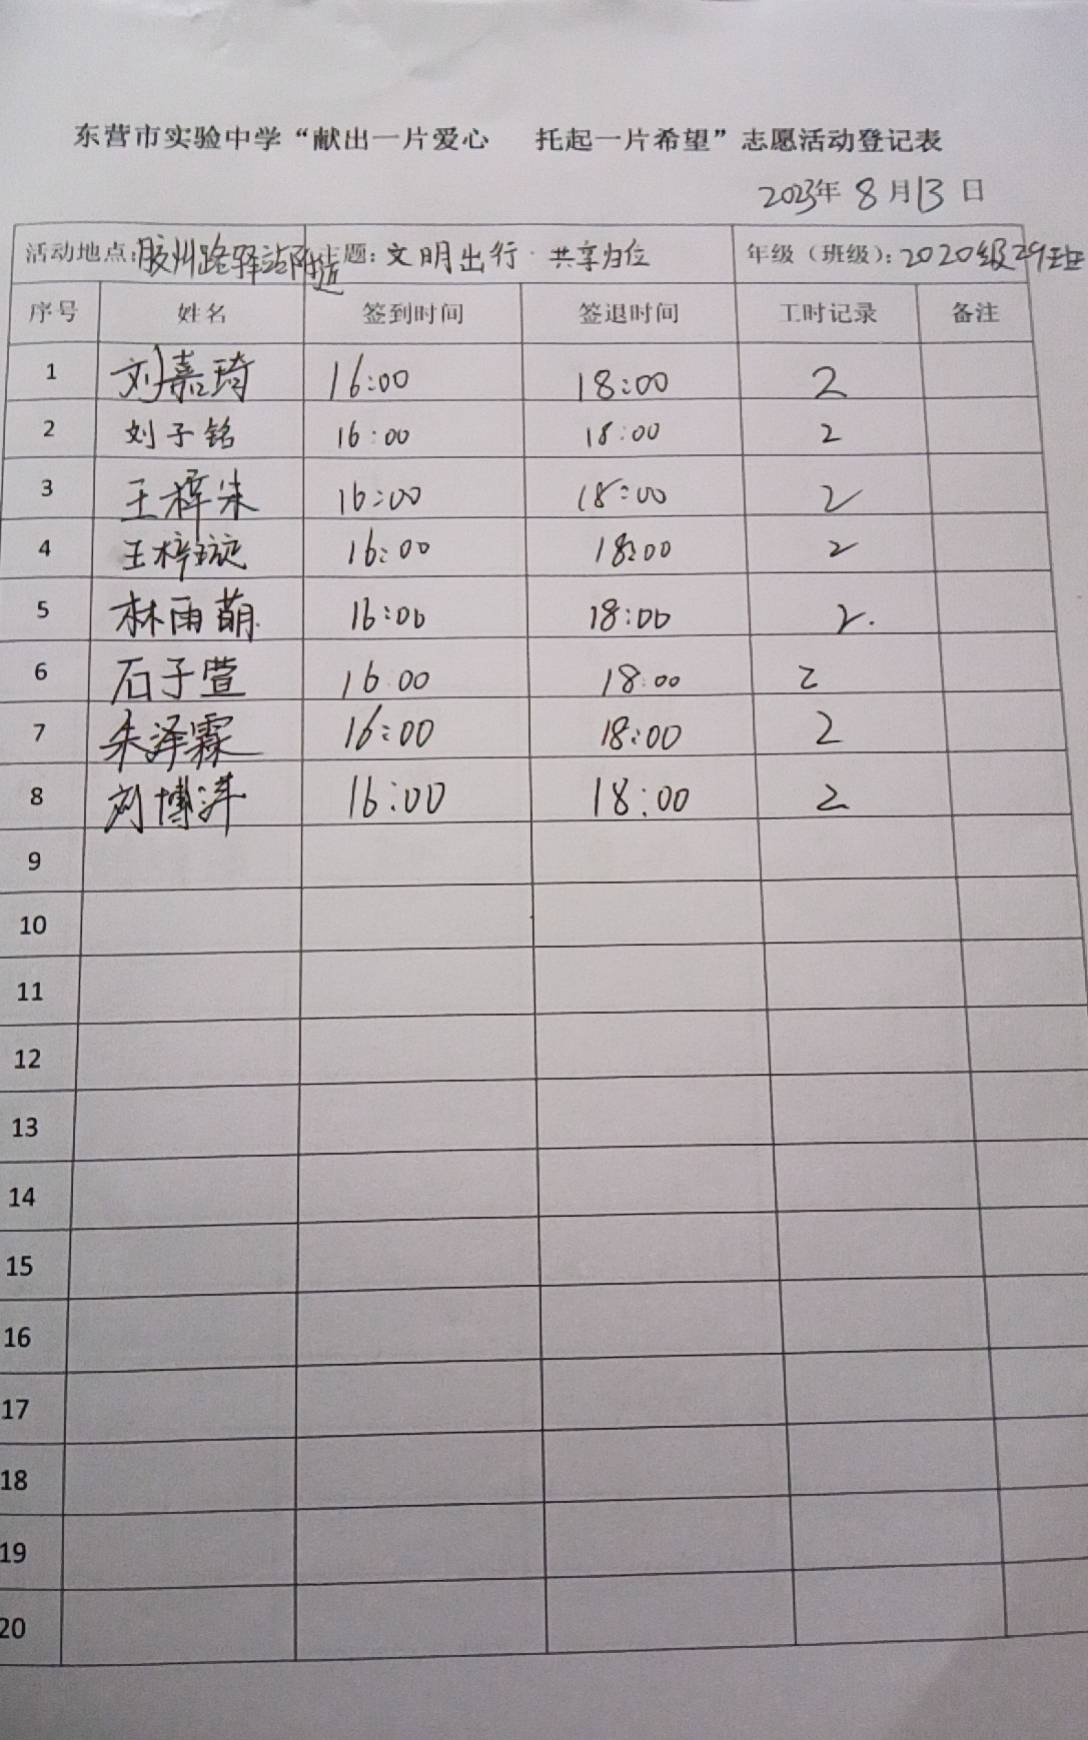 东营市实验中学“献出一片爱心 托起一片希望”志愿活动登记表
2023年 8 月 13 日
活动地点:胶州路驿站附近 主题: 文明出行 共享为位 年级（班级）: 2020级29班
序号 姓名 签到时间 签退时间 工时记录 备注
1 刘嘉琦 16:00 18:00 2
2 刘子铭 16:00 18:00 2
3 王梓朱 16:00 18:00 2
4 王梓璇 16:00 18:00 2
5 林雨萌 16:00 18:00 2.
6 石子萱 16:00 18:00 2
7 朱泽霖 16:00 18:00 2
8 刘博洋 16:00 18:00 2
9
10
11
12
13
14
15
16
17
18
19
20